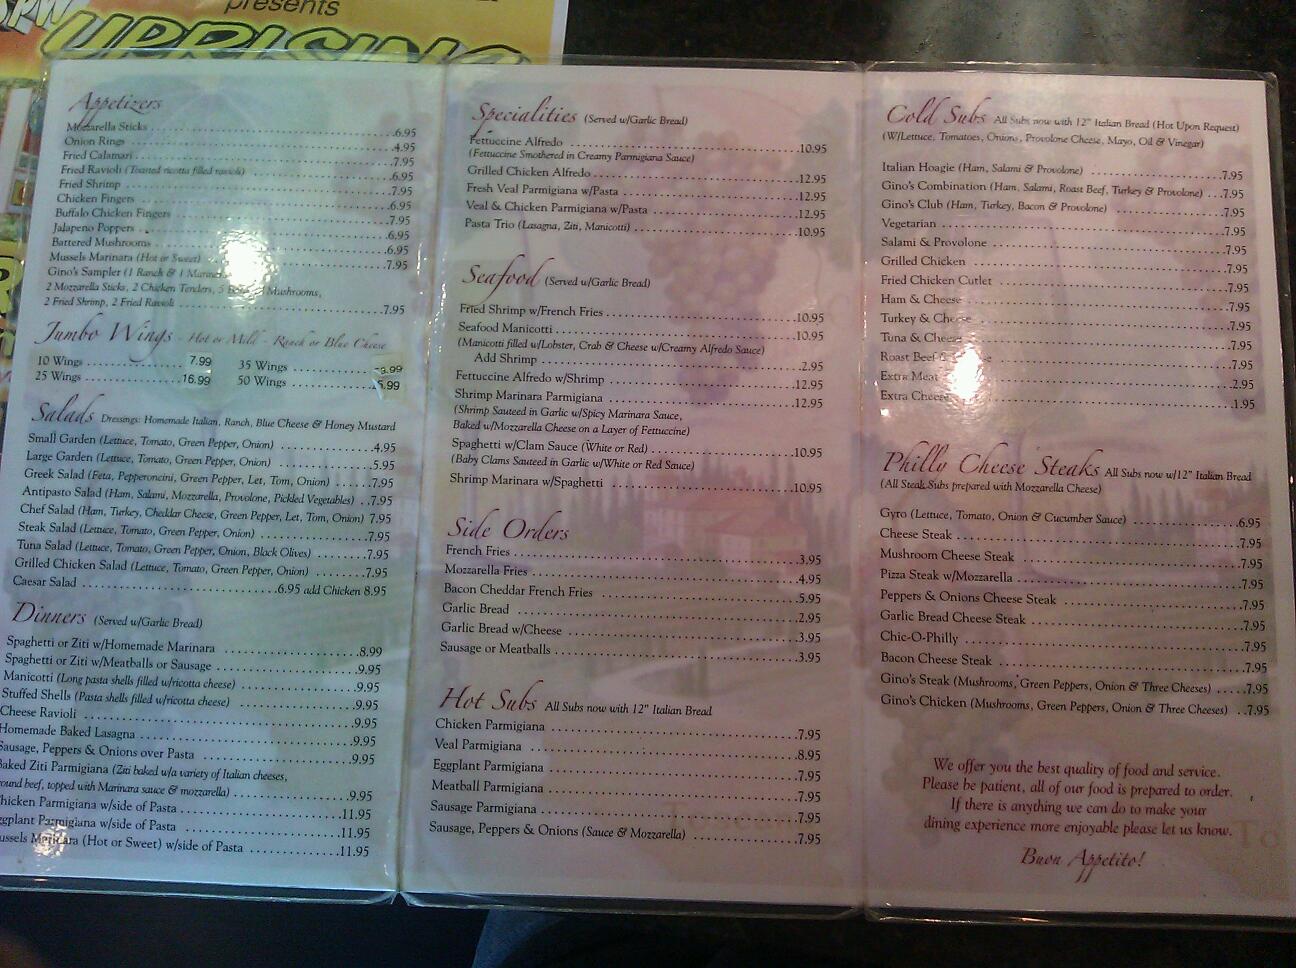 presents
UPRISING
Appetizers
Mozzarella Sticks 6.95
Onion Rings 4.95
Fried Calamari 7.95
Fried Ravioli (Toasted ricotta filled ravioli) 6.95
Fried Shrimp 7.95
Chicken Fingers 6.95
Buffalo Chicken Fingers 7.95
Jalapeno Poppers 6.95
Battered Mushrooms 6.95
Mussels Marinara (Hot or Sweet) 7.95
Gino's Sampler (1 Ranch & 1
2 Mozzarella Sticks, 2 Chicken Tenders, 5 Mushrooms,
2 Fried Shrimp, 2 Fried Ravioli 7.95
Jumbo Wings - Hot or Mild - Ranch or Blue Cheese
10 Wings 7.99 35 Wings
25 Wings 16.99 50 Wings
Salads Dressings: Homemade Italian, Ranch, Blue Cheese & Honey Mustard
Small Garden (Lettuce, Tomato, Green Pepper, Onion) 4.95
Large Garden (Lettuce, Tomato, Green Pepper, Onion) 5.95
Greek Salad (Feta, Pepperoncini, Green Pepper, Let, Tom, Onion) 7.95
Antipasto Salad (Ham, Salami, Mozzarella, Provolone, Pickled Vegetables) 7.95
Chef Salad (Ham, Turkey, Cheddar Cheese, Green Pepper, Let, Tom, Onion) 7.95
Steak Salad (Lettuce, Tomato, Green Pepper, Onion) 7.95
Tuna Salad (Lettuce, Tomato, Green Pepper, Onion, Black Olives) 7.95
Grilled Chicken Salad (Lettuce, Tomato, Green Pepper, Onion) 7.95
Caesar Salad 6.95 add Chicken 8.95
Dinners (Served w/Garlic Bread)
Spaghetti or Ziti w/Homemade Marinara 8.99
Spaghetti or Ziti w/Meatballs or Sausage 9.95
Manicotti (Long pasta shells filled w/ricotta cheese) 9.95
Stuffed Shells (Pasta shells filled w/ricotta cheese) 9.95
Cheese Ravioli 9.95
Homemade Baked Lasagna 9.95
Sausage, Peppers & Onions over Pasta 9.95
Baked Ziti Parmigiana (Ziti baked w/a variety of Italian cheeses,
ound beef, topped with Marinara sauce & mozzarella) 9.95
hicken Parmigiana w/side of Pasta 11.95
ggplant Parmigiana w/side of Pasta 11.95
ussels Marinara (Hot or Sweet) w/side of Pasta 11.95
Specialities (Served w/Garlic Bread)
Fettuccine Alfredo 10.95
(Fettuccine Smothered in Creamy Parmigiana Sauce)
Grilled Chicken Alfredo 12.95
Fresh Veal Parmigiana w/Pasta 12.95
Veal & Chicken Parmigiana w/Pasta 12.95
Pasta Trio (Lasagna, Ziti, Manicotti) 10.95
Seafood (Served w/Garlic Bread)
Fried Shrimp w/French Fries 10.95
Seafood Manicotti 10.95
(Manicotti filled w/Lobster, Crab & Cheese w/Creamy Alfredo Sauce)
Add Shrimp 2.95
Fettuccine Alfredo w/Shrimp 12.95
Shrimp Marinara Parmigiana 12.95
(Shrimp Sauteed in Garlic w/Spicy Marinara Sauce,
Baked w/Mozzarella Cheese on a Layer of Fettuccine)
Spaghetti w/Clam Sauce (White or Red) 10.95
(Baby Clams Sauteed in Garlic w/White or Red Sauce)
Shrimp Marinara w/Spaghetti 10.95
Side Orders
French Fries 3.95
Mozzarella Fries 4.95
Bacon Cheddar French Fries 5.95
Garlic Bread 2.95
Garlic Bread w/Cheese 3.95
Sausage or Meatballs 3.95
Hot Subs All Subs now with 12" Italian Bread
Chicken Parmigiana 7.95
Veal Parmigiana 8.95
Eggplant Parmigiana 7.95
Meatball Parmigiana 7.95
Sausage Parmigiana 7.95
Sausage, Peppers & Onions (Sauce & Mozzarella) 7.95
Cold Subs All Subs now with 12" Italian Bread (Hot Upon Request)
(W/Lettuce, Tomatoes, Onions, Provolone Cheese, Mayo, Oil & Vinegar)
Italian Hoagie (Ham, Salami & Provolone) 7.95
Gino's Combination (Ham, Salami, Roast Beef, Turkey & Provolone) 7.95
Gino's Club (Ham, Turkey, Bacon & Provolone) 7.95
Vegetarian 7.95
Salami & Provolone 7.95
Grilled Chicken 7.95
Fried Chicken Cutlet 7.95
Ham & Cheese 7.95
Turkey & Cheese 7.95
Tuna & Cheese 7.95
Roast Beef 7.95
Extra Meat 2.95
Extra Cheese 1.95
Philly Cheese Steaks All Subs now w/12" Italian Bread
(All Steak Subs prepared with Mozzarella Cheese)
Gyro (Lettuce, Tomato, Onion & Cucumber Sauce) 6.95
Cheese Steak 7.95
Mushroom Cheese Steak 7.95
Pizza Steak w/Mozzarella 7.95
Peppers & Onions Cheese Steak 7.95
Garlic Bread Cheese Steak 7.95
Chic-O-Philly 7.95
Bacon Cheese Steak 7.95
Gino's Steak (Mushrooms, Green Peppers, Onion & Three Cheeses) 7.95
Gino's Chicken (Mushrooms, Green Peppers, Onion & Three Cheeses) 7.95
We offer you the best quality of food and service.
Please be patient, all of our food is prepared to order.
If there is anything we can do to make your
dining experience more enjoyable please let us know.
Buon Appetito!